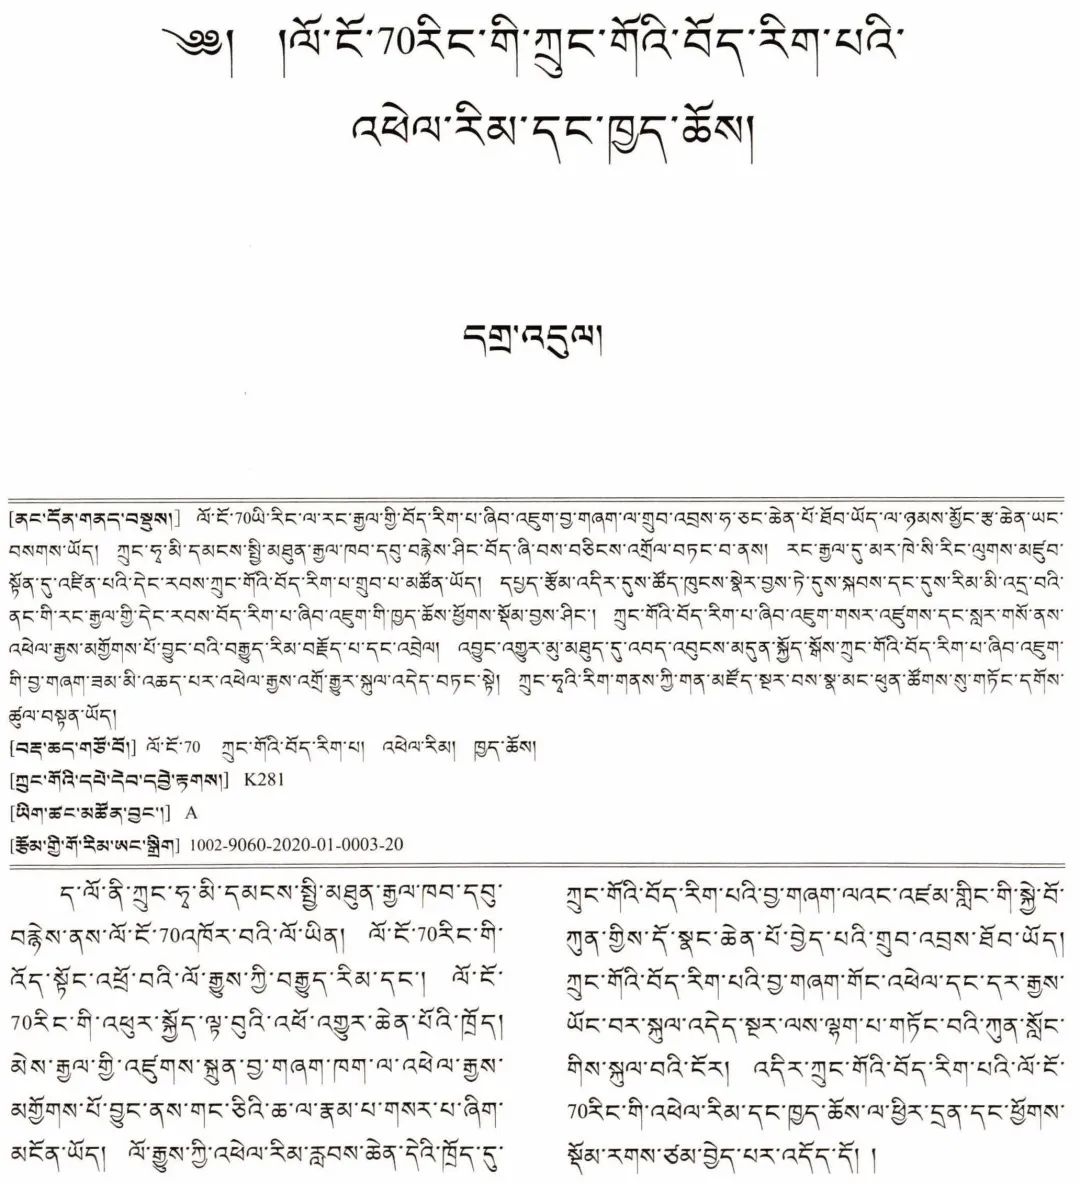 ༄༅། །ལོ་ངོ་70རིང་གི་ཀྲུང་གོའི་བོད་རིག་པའི་
འཕེལ་རིམ་དང་ཁྱད་ཆོས།
དགྲ་འདུལ།
[ནང་དོན་གནད་བསྡུས།] ལོ་ངོ་70ཡི་རིང་ལ་རང་རྒྱལ་གྱི་བོད་རིག་པ་ཞིབ་འཇུག་བྱ་གཞག་ལ་གྲུབ་འབྲས་ཧ་ཅང་ཆེན་པོ་ཐོབ་ཡོད་ལ་ཉམས་མྱོང་རྩ་ཆེན་ཡང་
བསགས་ཡོད། ཀྲུང་ཧྭ་མི་དམངས་སྤྱི་མཐུན་རྒྱལ་ཁབ་དབུ་བརྙེས་ཤིང་བོད་ཞི་བས་བཅིངས་འགྲོལ་བཏང་བ་ནས། རང་རྒྱལ་དུ་མར་ཁེ་སི་རིང་ལུགས་མཛུབ་
སྟོན་དུ་འཛིན་པའི་དེང་རབས་ཀྲུང་གོའི་བོད་རིག་པ་གྲུབ་པ་མཚོན་ཡོད། དཔྱད་རྩོམ་འདིར་དུས་ཚོད་ཁུངས་སྣེར་བྱས་ཏེ་དུས་སྐབས་དང་དུས་རིམ་མི་འདྲ་བའི་
ནང་གི་རང་རྒྱལ་གྱི་དེང་རབས་བོད་རིག་པ་ཞིབ་འཇུག་གི་ཁྱད་ཆོས་ཕྱོགས་སྡོམ་བྱས་ཤིང་། ཀྲུང་གོའི་བོད་རིག་པ་ཞིབ་འཇུག་གསར་འཛུགས་དང་སླར་གསོ་ནས་
འཕེལ་རྒྱས་མགྱོགས་པོ་བྱུང་བའི་བརྒྱུད་རིམ་བརྗོད་པ་དང་འབྲེལ། འབྱུང་འགྱུར་མུ་མཐུད་དུ་འབད་འབུངས་མདུན་སྐྱོད་སྒོས་ཀྲུང་གོའི་བོད་རིག་པ་ཞིབ་འཇུག་
གི་བྱ་གཞག་ཟམ་མི་འཆད་པར་འཕེལ་རྒྱས་འགྲོ་རྒྱུར་སྐུལ་འདེད་བཏང་སྟེ། ཀྲུང་ཧྭའི་རིག་གནས་ཀྱི་གན་མཛོད་སྔར་བས་སྣ་མང་ཕུན་ཚོགས་སུ་གཏོང་དགོས་
ཚུལ་བསྟན་ཡོད།
[བརྡ་ཆད་གཙོ་བོ།] ལོ་ངོ་70 ཀྲུང་གོའི་བོད་རིག་པ། འཕེལ་རིམ། ཁྱད་ཆོས།
[ཀྲུང་གོའི་དཔེ་དེབ་དབྱེ་རྟགས།] K281
[ཡིག་ཚང་མཚོན་བྱང་།] A
[རྩོམ་གྱི་གོ་རིམ་ཨང་སྒྲིག] 1002-9060-2020-01-0003-20
ད་ལོ་ནི་ཀྲུང་ཧྭ་མི་དམངས་སྤྱི་མཐུན་རྒྱལ་ཁབ་དབུ་
བརྙེས་ནས་ལོ་ངོ་70འཁོར་བའི་ལོ་ཡིན། ལོ་ངོ་70རིང་གི་
འོད་སྟོང་འཕྲོ་བའི་ལོ་རྒྱུས་ཀྱི་བརྒྱུད་རིམ་དང་། ལོ་ངོ་
70རིང་གི་འཕུར་སྐྱོད་ལྟ་བུའི་འཕོ་འགྱུར་ཆེན་པོའི་ཁྲོད།
མེས་རྒྱལ་གྱི་འཛུགས་སྐྲུན་བྱ་གཞག་ཁག་ལ་འཕེལ་རྒྱས་
མགྱོགས་པོ་བྱུང་ནས་གང་ཅིའི་ཆ་ལ་རྣམ་པ་གསར་པ་ཞིག་
མངོན་ཡོད། ལོ་རྒྱུས་ཀྱི་འཕེལ་རིམ་རླབས་ཆེན་དེའི་ཁྲོད་དུ་
ཀྲུང་གོའི་བོད་རིག་པའི་བྱ་གཞག་ལའང་འཛམ་གླིང་གི་སྐྱེ་བོ་
ཀུན་གྱིས་དོ་སྣང་ཆེན་པོ་བྱེད་པའི་གྲུབ་འབྲས་ཐོབ་ཡོད།
ཀྲུང་གོའི་བོད་རིག་པའི་བྱ་གཞག་གོང་འཕེལ་དང་དར་རྒྱས་
ཡོང་བར་སྐུལ་འདེད་སྔར་ལས་ལྷག་པ་གཏོང་བའི་ཀུན་སློང་
གིས་སྐུལ་བའི་ངོར། འདིར་ཀྲུང་གོའི་བོད་རིག་པའི་ལོ་ངོ་
70རིང་གི་འཕེལ་རིམ་དང་ཁྱད་ཆོས་ལ་ཕྱིར་དྲན་དང་ཕྱོགས་
སྡོམ་རགས་ཙམ་བྱེད་པར་འདོད་དོ། །